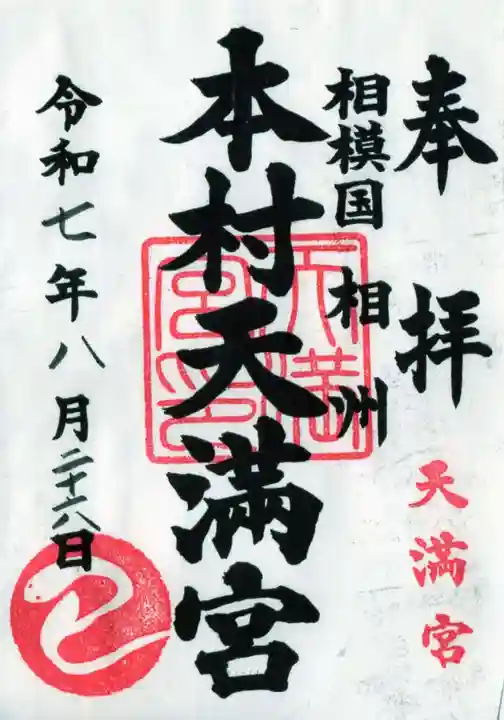 奉拝
天満宮
相模国 相州
本村天満宮
天満宮印
令和七年八月二十六日